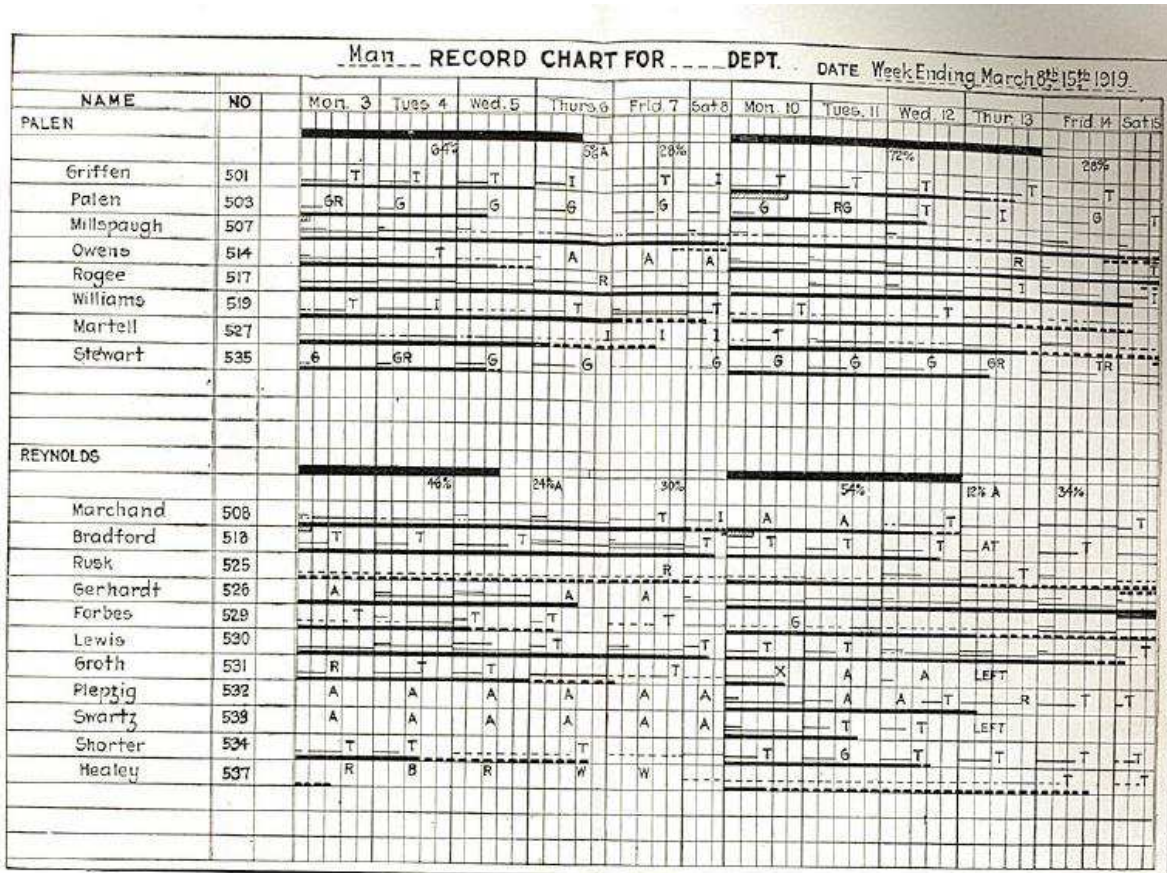 Man RECORD CHART FOR DEPT. DATE Week Ending March 8th 15th 1919
NAME NO Mon. 3 Tues 4 Wed. 5 Thurs 6 Frid. 7 Sat 8 Mon. 10 Tues. 11 Wed. 12 Thur. 13 Frid 14 Sat 15
PALEN
64% 5%A 28% 72% 28%
Griffen 501 T I T I T I T T T T T
Palen 503 GR G G G G G RG T I G T
Millspaugh 507
Owens 514 T A A A R T
Rogee 517 R I I
Williams 519 T I T T T T
Martell 527 I I I T
Stewart 535 G GR G G G G G G GR TR
REYNOLDS
46% 24%A 30% 54% 12% A 34%
Marchand 508 T I A A T T
Bradford 518 T T T T T T T AT T
Rusk 525 R T
Gerhardt 526 A A A
Forbes 529 T T T T G
Lewis 530 T T T T T
Groth 531 R T T T X A A LEFT
Pleptig 532 A A A A A A A A T R T T
Swartz A A A A A A T T LEFT
Shorter 534 T T T T G T T T T
Healey 537 R B R W W T T